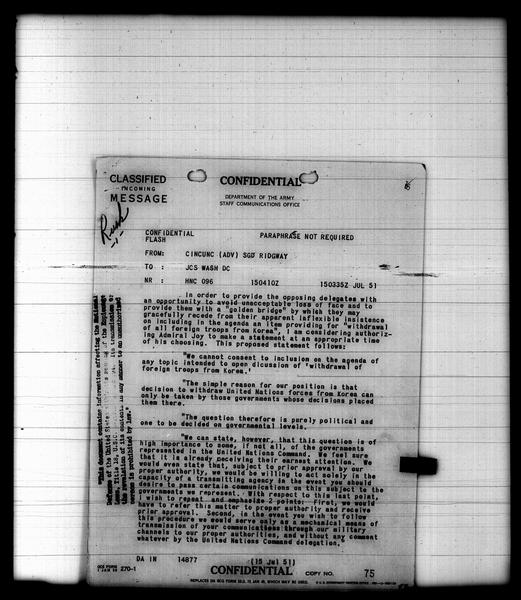 CLASSIFIED
INCOMING
MESSAGE
CONFIDENTIAL
DEPARTMENT OF THE ARMY
STAFF COMMUNICATIONS OFFICE
Rush
-1-
CONFIDENTIAL
FLASH
PARAPHRASE NOT REQUIRED
FROM: CINCUNC (ADV) SGD RIDGWAY
TO : JCS WASH DC
NR : HNC 096 150410Z 150335Z JUL 51
In order to provide the opposing delegates with
an opportunity to avoid unacceptable loss of face and to
provide them with a "golden bridge" by which they may
gracefully recede from their apparent inflexible insistence
on including in the agenda an item providing for "withdrawal
of all foreign troops from Korea", I am considering authoriz-
ing Admiral Joy to make a statement at an appropriate time
of his choosing. This proposed statement follows:
"We cannot consent to inclusion on the agenda of
any topic intended to open dicussion of 'withdrawal of
foreign troops from Korea.'
"The simple reason for our position is that
decision to withdraw United Nations forces from Korea can
only be taken by those governments whose decisions placed
them there.
"The question therefore is purely political and
one to be decided on governmental levels.
"We can state, however, that this question is of
high importance to some, if not all, of the governments
represented in the United Nations Command. We feel sure
that is already receiving their earnest attention. We
would even state that, subject to prior approval by our
proper authority, we would be willing to act solely in the
capacity of a transmitting agency in the event you should
desire to pass certain communications on this subject to the
governments we represent. With respect to this last point,
I wish to repeat and emphasize 2 points: First, we would
have to refer this matter to proper authority and receive
prior approval. Second, in the event you wish to follow
this procedure we would serve only as a mechanical means of
transmission of your communications through our military
channels to our proper authorities, and without any comment
whatever by the United Nations Command delegation."
"This document contains information affecting the National
Defense of the United States within the meaning of the Espionage
the revelation of its contents in any manner to an unauthorized
person is prohibited by law."
DA IN 14877 (15 Jul 51)
270-1
CONFIDENTIAL
COPY NO. 75